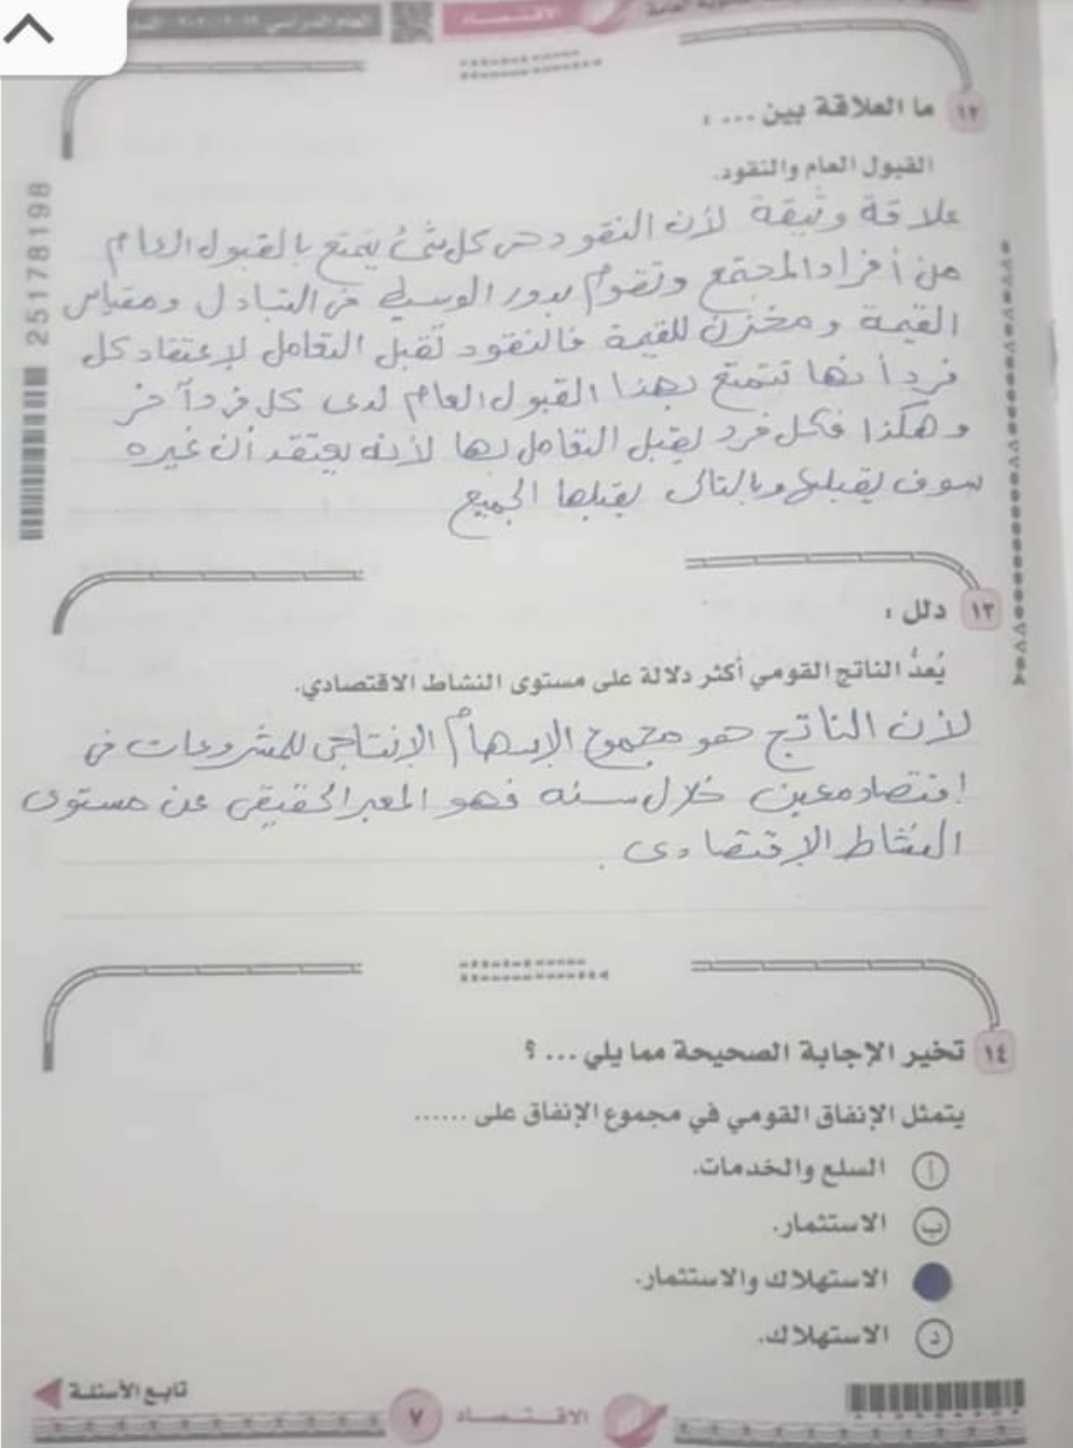 العام الدراسي
الاقتصاد
١٢ ما العلاقة بين ... :
القبول العام والنقود.
علاقة وثيقة لأن النقود هى كل شئ يتمتع بالقبول العام
من أفراد المجتمع وتقوم بدور الوسيط فى التبادل ومقياس
القيمة ومخزن للقيمة فالنقود تُقبل التعامل لإعتقاد كل
فرد أنها تتمتع بهذا القبول العام لدى كل فرد آخر
وهكذا فكل فرد يقبل التعامل بها لأنه يعتقد أن غيره
سوف يقبلها وبالتالى يقبلها الجميع
25178198
١٣ دلل :
يُعدُّ الناتج القومي أكثر دلالة على مستوى النشاط الاقتصادي.
لأن الناتج هو مجموع الإسهام الإنتاجى للمشروعات فى
إقتصاد معين خلال سنه فهو المعبر الحقيقى عن مستوى
النشاط الإقتصادى .
١٤ تخير الإجابة الصحيحة مما يلي ... ؟
يتمثل الإنفاق القومي في مجموع الإنفاق على ......
أ السلع والخدمات.
ب الاستثمار.
الاستهلاك والاستثمار.
د الاستهلاك.
تابع الأسئلة
٧ الاقتصاد